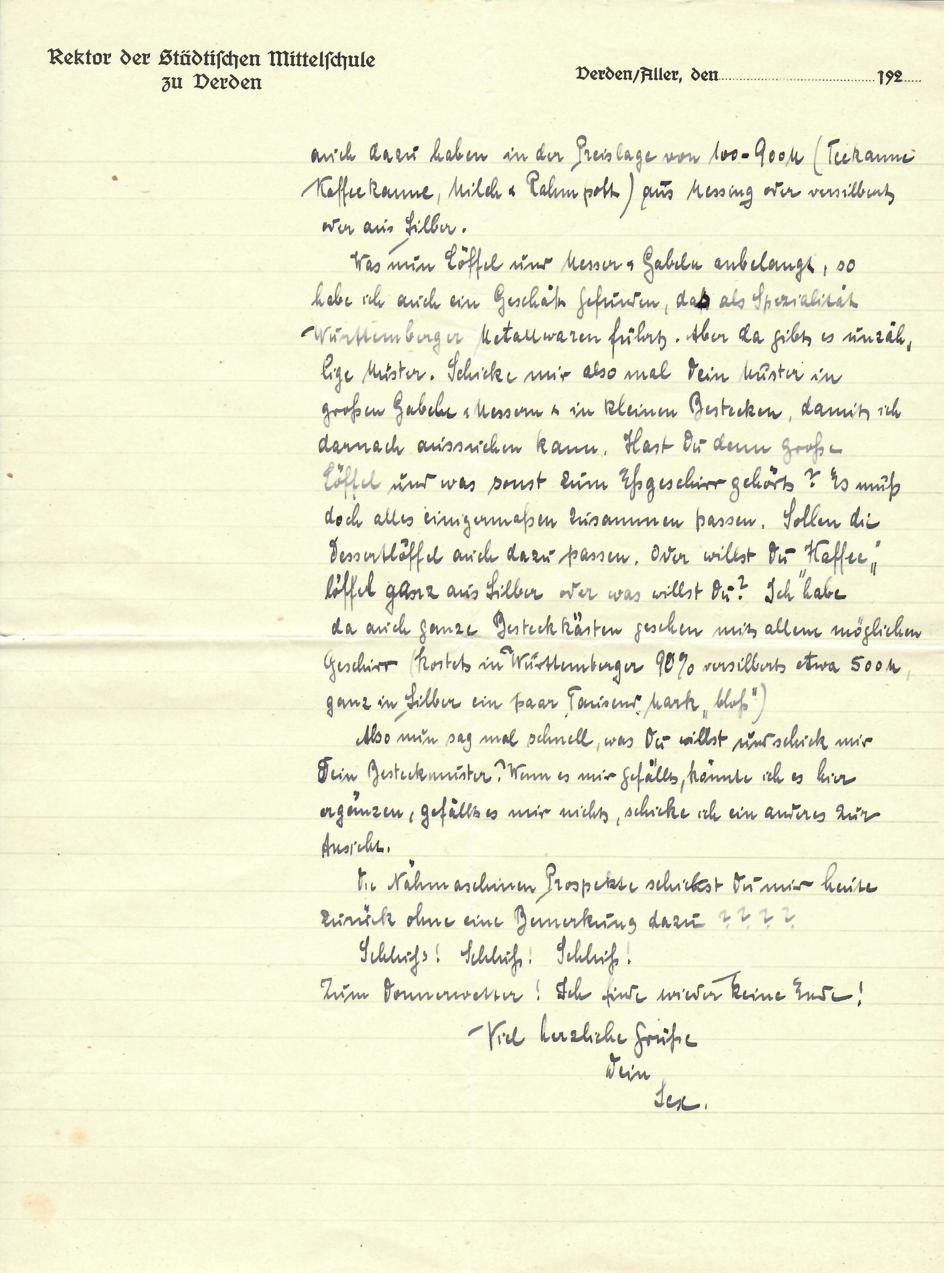 Rektor der Städtischen Mittelschule
zu Verden
Verden/Aller, den 192
auch dazu haben in der Preislage von 100-900M (Teekanne
Kaffeekanne, Milch & Rahmpott) aus Messing oder versilbert
oder aus Silber.
Was nun Löffel und Messer & Gabeln anbelangt, so
habe ich auch ein Geschäft gefunden, das als Spezialität
Württemberger Metallwaren führt. Aber da gibt es unzäh,
lige Muster. Schicke mir also mal Dein Muster in
großen Gabeln & Messern & in kleinen Bestecken, damit ich
darnach aussuchen kann. Hast Du denn große
Löffel und was sonst zum Eßgeschirr gehört? Es muß
doch alles einigermaßen zusammen passen. Sollen die
Dessertlöffel auch dazu passen. Oder willst Du "Kaffee„
löffel ganz aus Silber oder was willst Du? Ich habe
da auch ganze Besteckkästen gesehen mit allem möglichen
Geschirr (kostet in Württemberger 90% versilbert etwa 500M,
ganz in Silber ein paar Tausend Mark „bloß")
Also nun sag mal schnell, was Du willst und schick mir
Dein Besteckmuster? Wenn es mir gefällt, könnte ich es hier
ergänzen, gefällt es mir nicht, schicke ich ein anderes zur
Ansicht.
Die Nähmaschinen Prospekte schickst Du mir heute
zurück ohne eine Bemerkung dazu ? ? ? ?
Schluß! Schluß! Schluß!
Zum Donnerwetter! Ich finde wieder keine Ende!
Viel herzliche Grüße
Dein